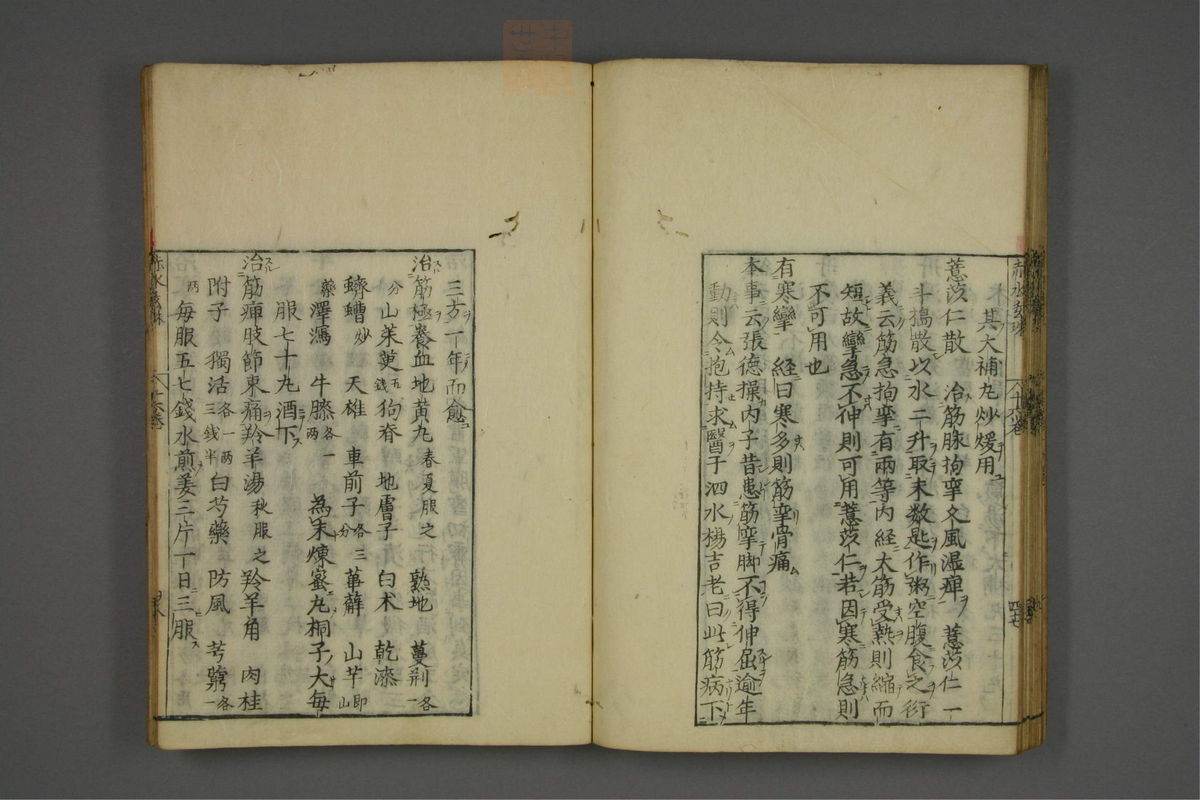 其大補丸炒煖用
薏苡仁散 治筋脉拘攣久風湿痺 薏苡仁一
斗搗散以水二升取末数匙作粥空腹食之衍
義云筋急拘攣有兩等内経大筋受熱則縮而
短故攣急不伸則可用薏苡仁若因寒筋急則
不可用也
有寒攣 経曰寒多則筋攣骨痛
本事云張德操内子昔患筋攣脚不得伸屈逾年
動則令抱持求醫于泗水楊吉老曰此筋病下
三方一年而愈
治筋極養血地黄丸 春夏服之 熟地 蔓荊各一
分 山茱萸五錢 狗脊 地膚子 白术 乾漆
蠐螬炒 天雄 車前子各三分 萆薢 山芋即山
藥 澤瀉 牛膝各一兩 為末煉蜜丸桐子大每
服七十丸酒下
治筋痺肢節束痛羚羊湯 秋服之 羚羊角 肉桂
附子 獨活各一兩三錢半 白芍藥 防風 芎藭各一
兩 每服五七錢水煎姜三片一日三服